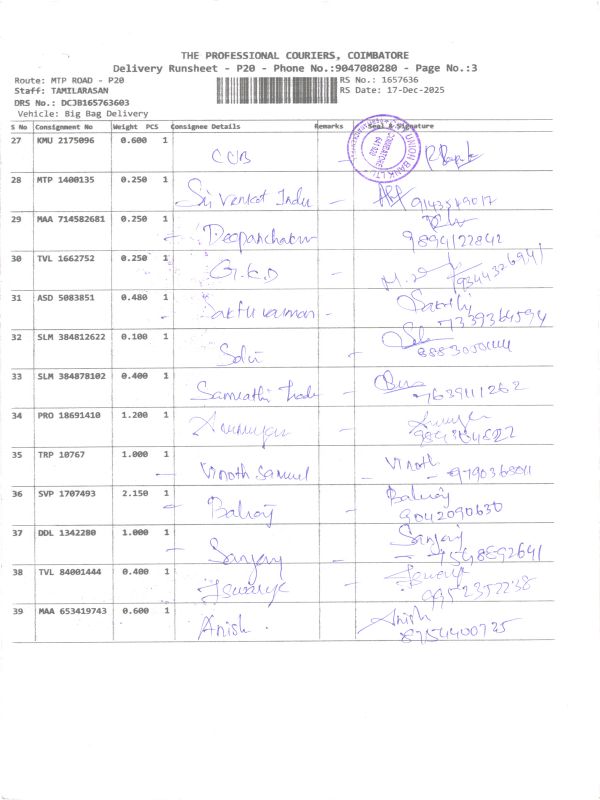 THE PROFESSIONAL COURIERS, COIMBATORE
Delivery Runsheet - P20 - Phone No.:9047080280 - Page No.:3
Route: MTP ROAD - P20 RS No.: 1657636
Staff: TAMILARASAN RS Date: 17-Dec-2025
DRS No.: DCJB165763603
Vehicle: Big Bag Delivery
S No Consignment No Weight PCS Consignee Details Remarks Seal & Signature
27 KMU 2175096 0.600 1 CUB
UNION BANK LTD
COIMBATORE
28 MTP 1400135 0.250 1 Sri Venkat Indu
29 MAA 714582681 0.250 1 9894122842
30 TVL 1662752 0.250 1 G.K.D
31 ASD 5083851 0.480 1 Sakthi 7339364594
32 SLM 384812622 0.100 1
33 SLM 384878102 0.400 1 7639111262
34 PRO 18691410 1.200 1
35 TRP 10767 1.000 1 Vinoth Samuel Vinoth
36 SVP 1707493 2.150 1 Balraj Balraj
9042090630
37 DDL 1342280 1.000 1 Sanjay Sanjay
7548892641
38 TVL 84001444 0.400 1 9952352238
39 MAA 653419743 0.600 1 Anish. Anish
8754400725